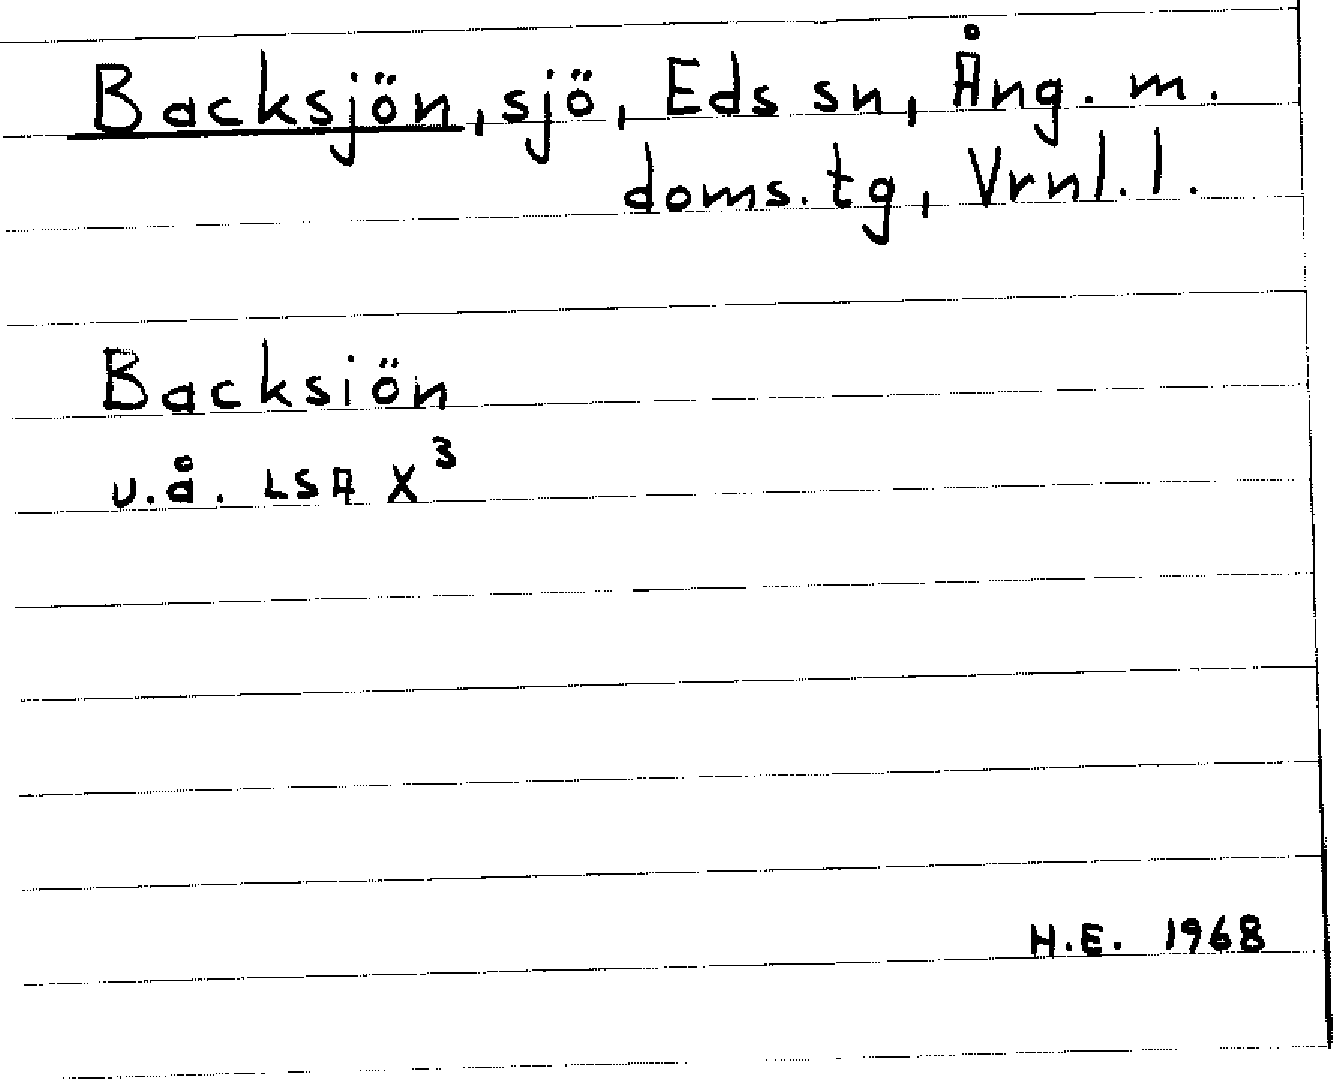 Backsjön, sjö, Eds sn, Ång. m.
doms. tg, Vrnl. l.
Backsiön
u.å. LSA X³
H.E. 1968